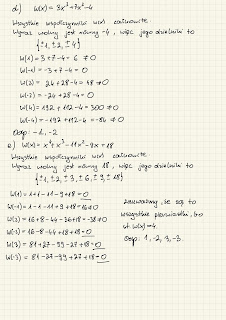 d) W(x) = 3x³+7x²-4
Wszystkie współczynniki W(x) całkowite
Wyraz wolny jest równy -4, więc jego dzielniki to
{±1, ±2, ±4}
W(1) = 3+7-4 = 6 ≠0
W(-1) = -3+7-4=0
W(2) = 24+28-4=48≠0
W(-2) = -24+28-4=0
W(4) = 192+112-4=300≠0
W(-4) = -192+112-4=-84≠0
Odp: -1, -2
e) W(x) = x⁴+x³-11x²-9x+18
Wszystkie współczynniki W(x) całkowite
Wyraz wolny jest równy 18, więc jego dzielniki to
{±1, ±2, ±3, ±6, ±9, ±18}
W(1) = 1+1-11-9+18=0
W(-1) = 1-1-11+9+18=16≠0
W(2) = 16+8-44-18+18=-38≠0
W(-2) = 16-8-44+18+18=0
W(3) = 81+27-99-27+18=0
W(-3) = 81-27-99+27+18=0
zauważmy, że są to
wszystkie pierwiastki, bo
st. W(x)=4.
Odp: 1, -2, 3, -3.